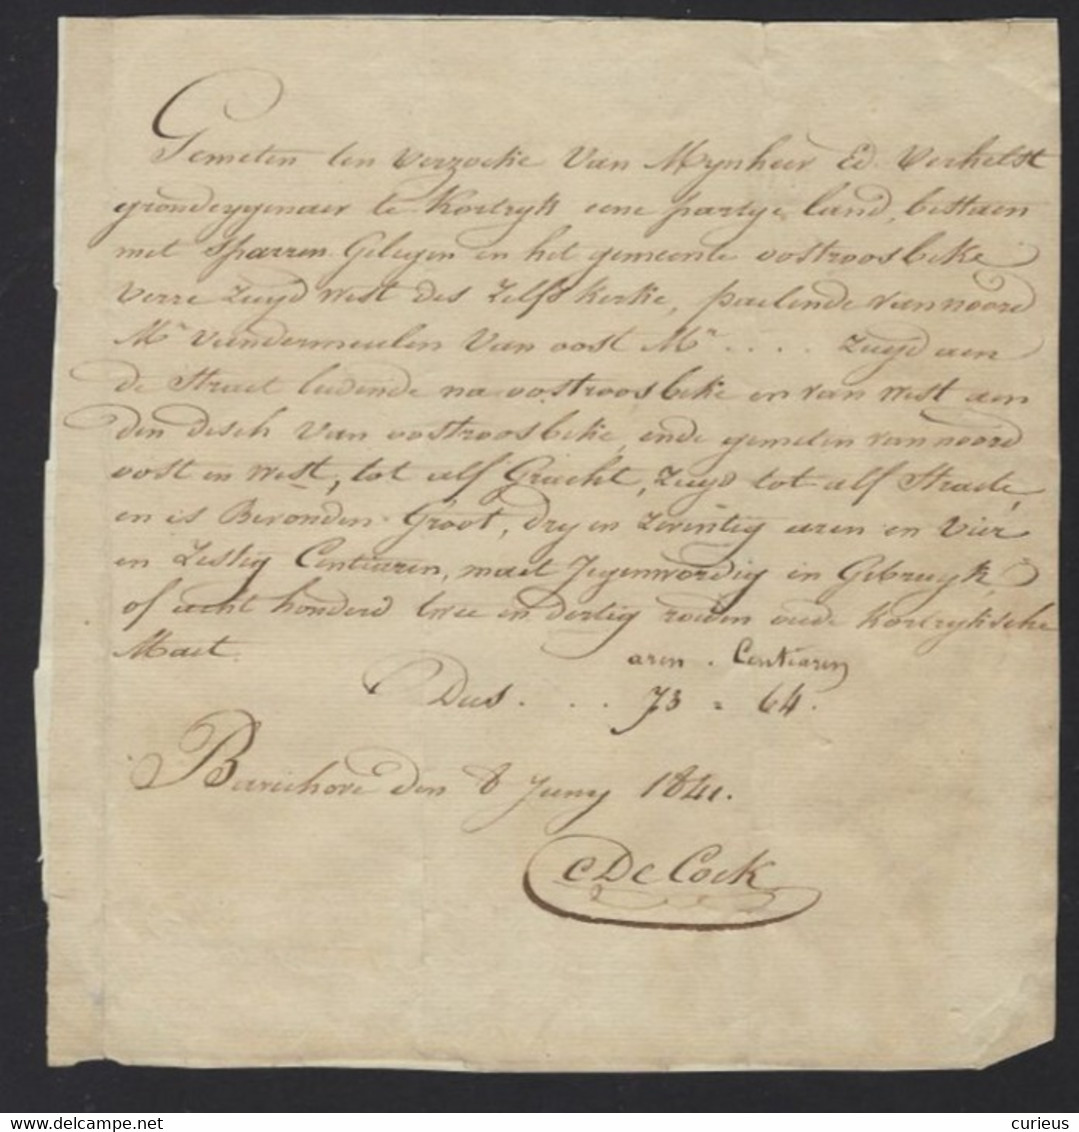 Gemeten ten verzoeke van Mynheer Ed. Verhelst
grondeygenaer te Kortryk, eene partye land, bestaen
met Sparren Gelegen in het gemeente oostroosbeke
verre zuyd west des zelfs kerke, paelende van noord
Mr. vandermeulen van oost Mr. .... zuyd aen
de Straet leedende na oostroosbeke en van west aen
den disch van oostroosbeke, ende gemeten van noord
oost en west, tot alf Gracht, zuyd tot alf Straete,
en is Bevonden Groot, dry en zeventig aren en vier
en zestig Centiaren, maet Jegenwordig in Gebruyk,
of acht honderd twee en dertig roeden oude kortryksche
Maet.
aren . Centiaren
Dus . . . 73 = 64.
den 8 Juny 1841.
C De Cock
delcampe.net
curieus